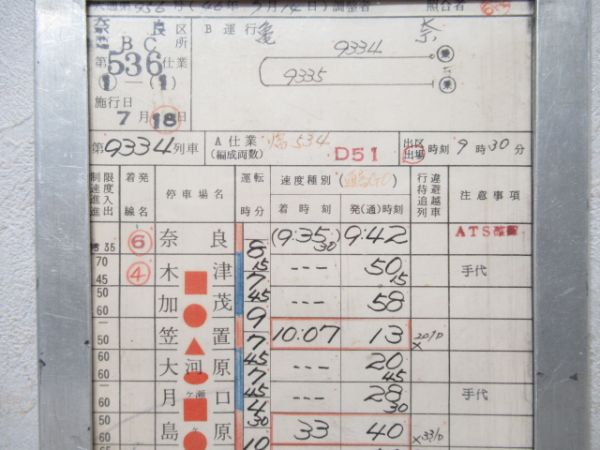 奈良区所 B運行 亀 奈
BC
9334
第536仕業
9335
①-(1)
施行日
7月18日
第9334列車 A仕業(編成両数) 臨534 D51 出区出場時刻 9時30分
制限速度進入進出 着発線名 停車場名 運転時分 速度種別 着時刻 発(通)時刻 行違待避追越列車 注意事項
35 ⑥ 奈良 (9.35 30) 9.42 ATS確認
8
70 45 ④ 木津 15 --- 50 15 手代
7
50 60 加茂 45 --- 58
9
50 笠置 10:07 13
7
50 60 大河原 45 --- 20 45
7
60 月ヶ瀬口 45 --- 28 30 手代
4
60 島ヶ原 30 33 40
10